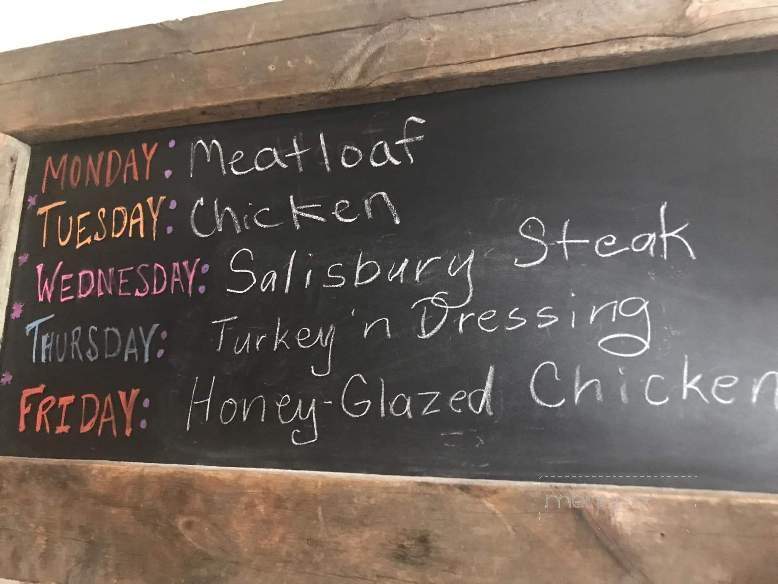 MONDAY: Meatloaf
TUESDAY: Chicken
WEDNESDAY: Salisbury Steak
THURSDAY: Turkey 'n Dressing
FRIDAY: Honey-Glazed Chicken